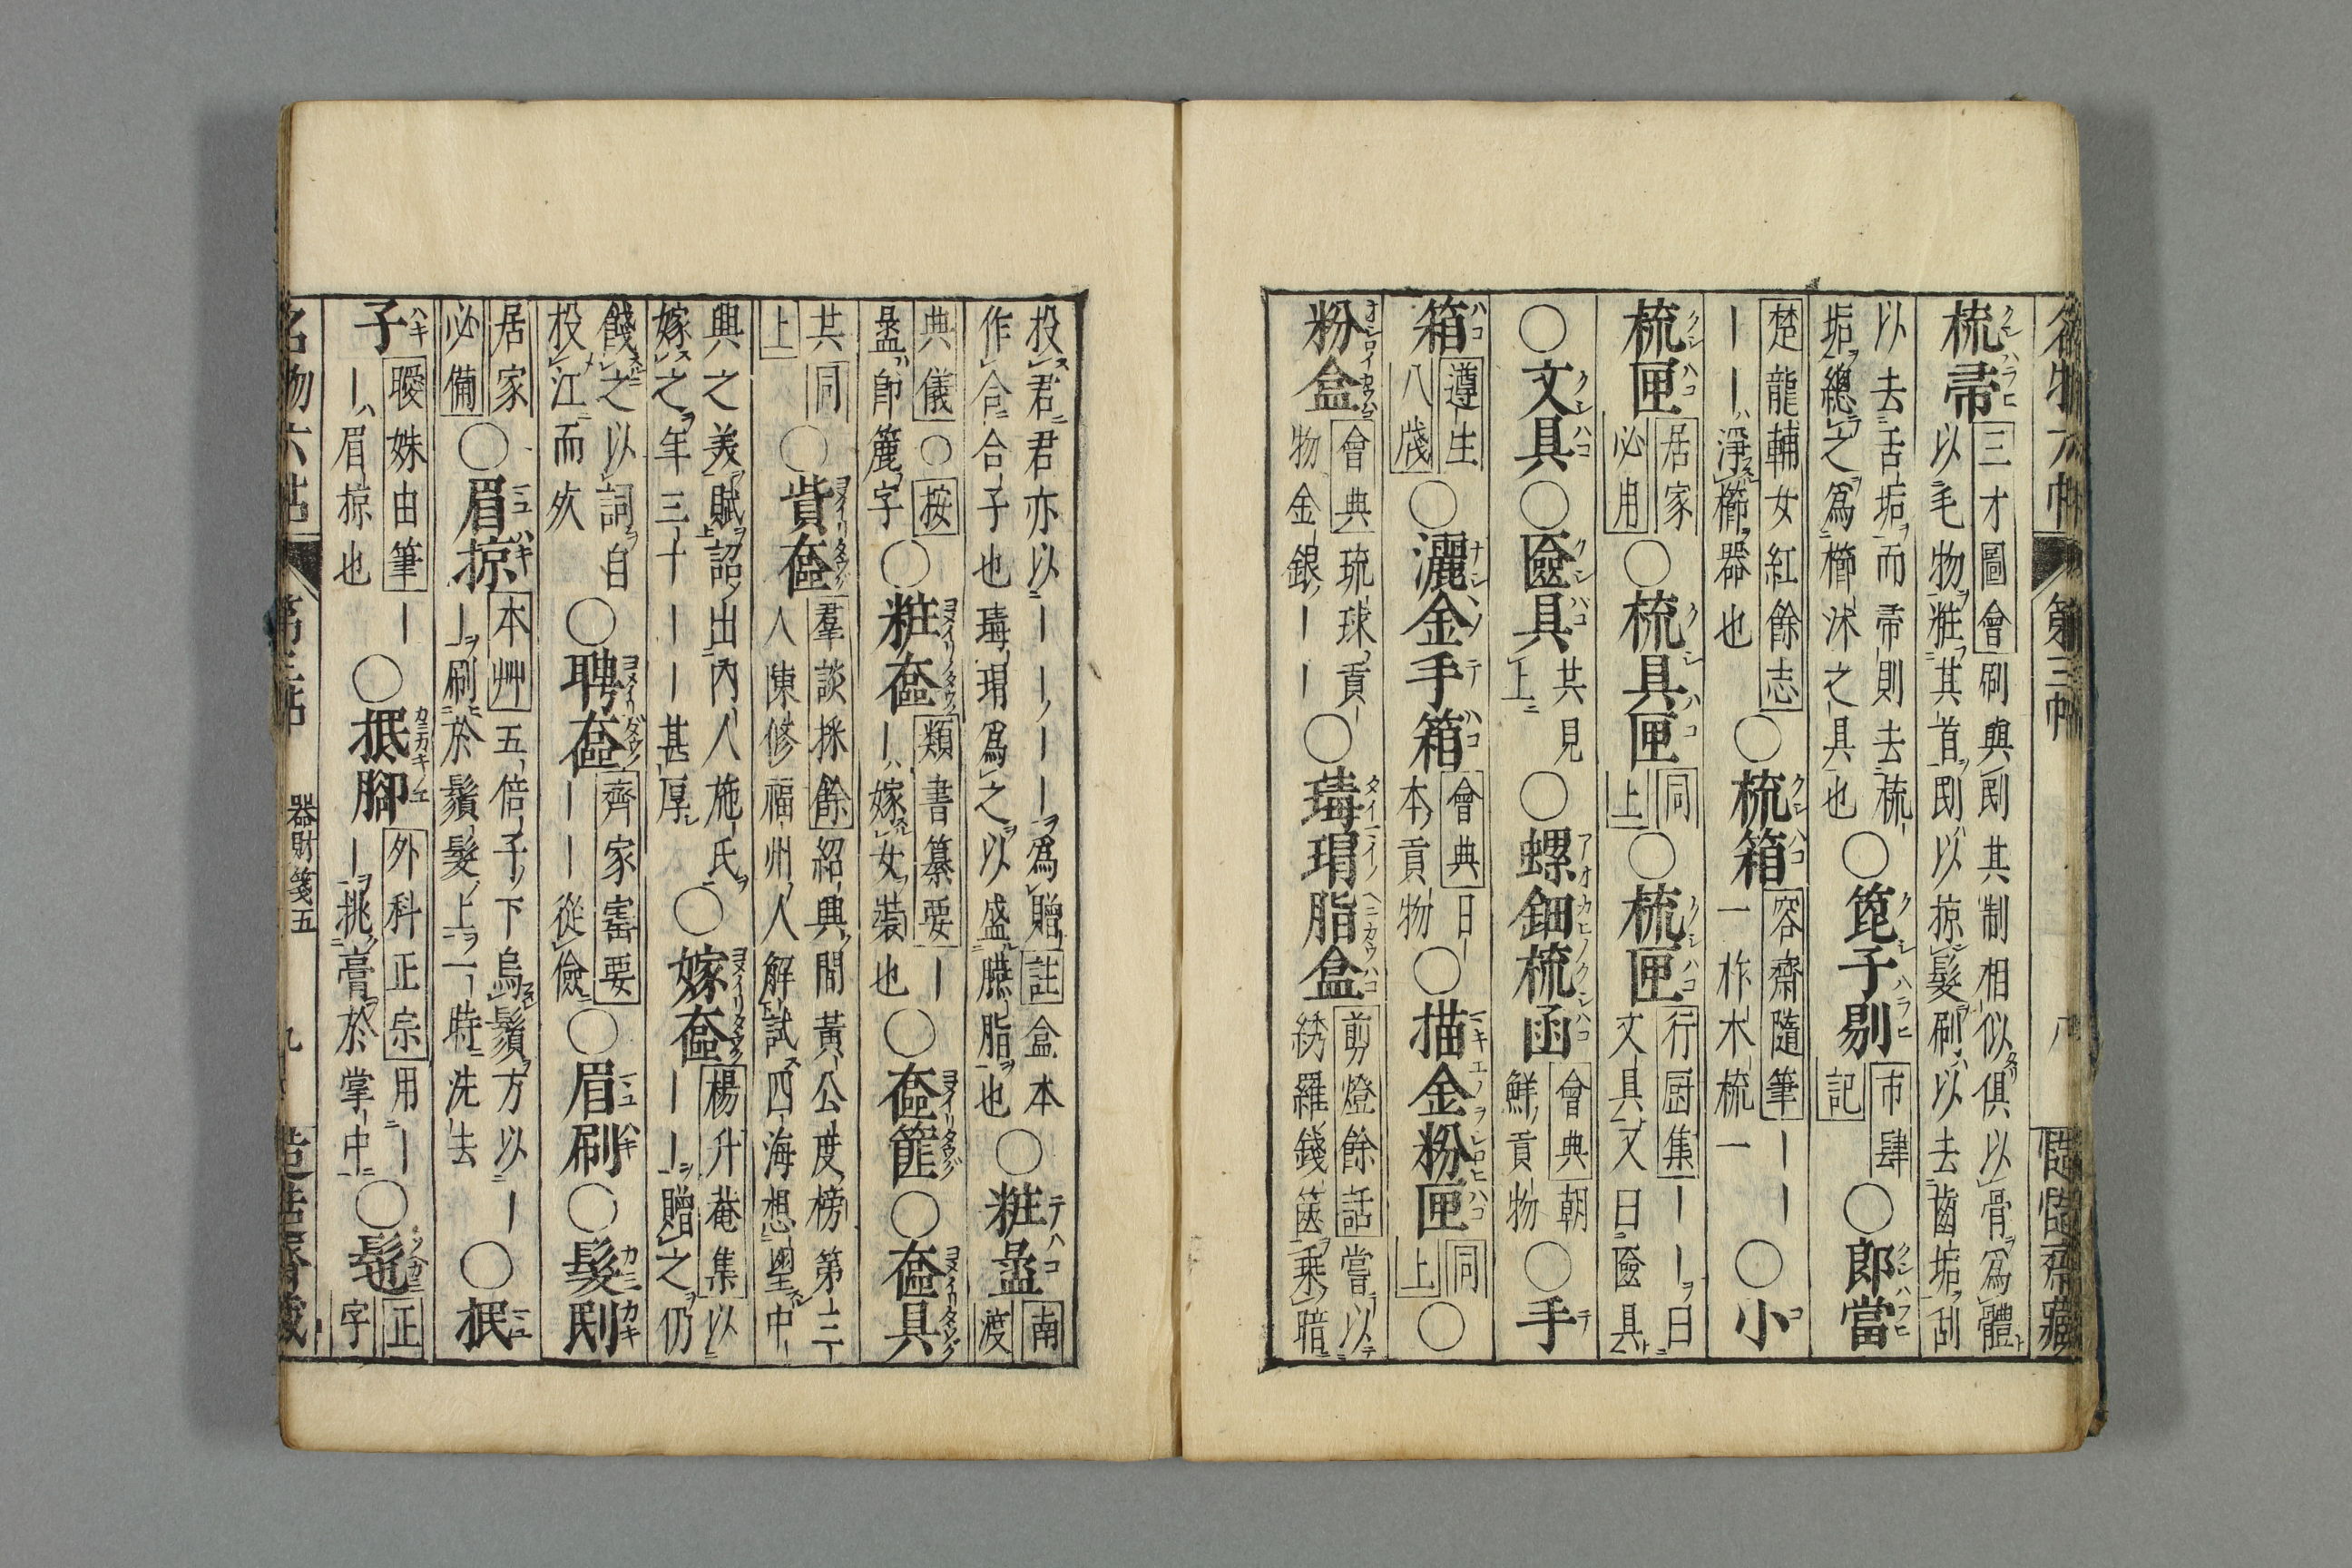 名物六帖 第三帖 八
梳帚 三才圖會刷與刡其制相似俱以骨爲體
以毛物粧其首刡以掠髮刷以去齒垢刮
以去舌垢而帚則去梳
垢總之爲櫛沐之具也 ○篦子剔 市肆記 ○郎當
楚龍輔女紅餘志
｜｜淨櫛器也 ○梳箱 容齋隨筆｜｜
一柞木梳一 ○小
梳匣 居家必用 ○梳具匣 同上 ○梳匣 行厨集｜｜曰
文具又曰匳具
○文具○匳具 共見上 ○螺鈿梳函 會典朝鮮貢物 ○手
箱 遵生八牋 ○灑金手箱 會典日本貢物 ○描金粉匣 同上 ○
粉盒 會典琉球貢
物金銀｜｜ ○瑇瑁脂盒 剪燈餘話嘗以
綉羅錢篋乘暗
投君君亦以｜｜｜爲贈 註盒本
作合合子也瑇瑁爲之以盛臙脂也 ○粧盝 南渡
典儀○按
盝即簏字 ○粧奩 類書纂要｜
｜嫁女裝也 ○奩篚○奩具
共同上 ○貲奩 羣談採餘紹興間黃公度榜第三
人陳修福州人解試四海想中
興之美賦詔出內人施氏
嫁之年三十｜｜甚厚 ○嫁奩 楊升菴集以
｜｜贈之仍
餞之以詞自
投江而死 ○聘奩 齊家寶要
｜｜從儉 ○眉刷○髮刡
居家必備 ○眉掠 本艸五倍子下烏鬚方以｜
｜刷於鬚髮上一時洗去 ○抿
子 曖姝由筆｜
｜眉掠也 ○抿脚 外科正宗用｜
｜挑膏於掌中 ○髢 正字
名物六帖 第三帖 器財箋五 九